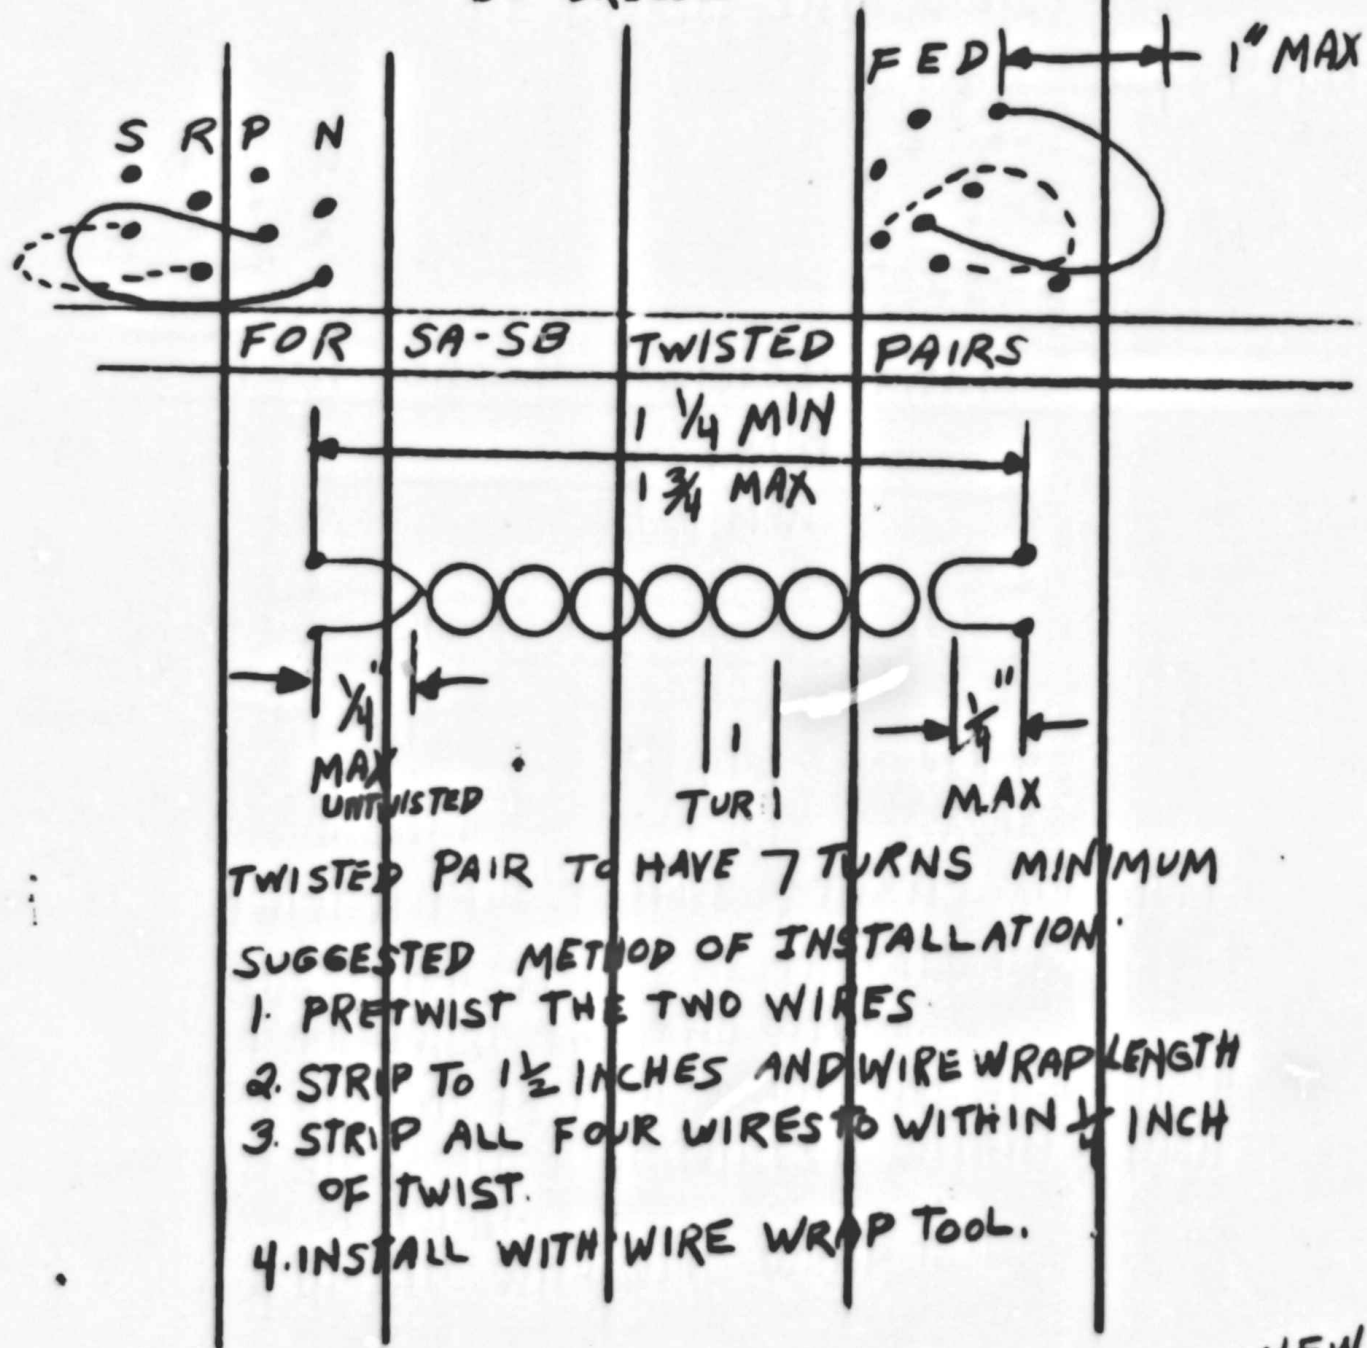 F E D 1" MAX
S R P N
FOR SA-SB TWISTED PAIRS
1 1/4 MIN
1 3/4 MAX
1/4" 1 1/4"
MAX MAX
UNTWISTED TUR
TWISTED PAIR TO HAVE 7 TURNS MINIMUM
SUGGESTED METHOD OF INSTALLATION
1. PRETWIST THE TWO WIRES
2. STRIP TO 1 1/2 INCHES AND WIRE WRAP LENGTH
3. STRIP ALL FOUR WIRES TO WITHIN 1/4 INCH
OF TWIST.
4. INSTALL WITH WIRE WRAP TOOL.